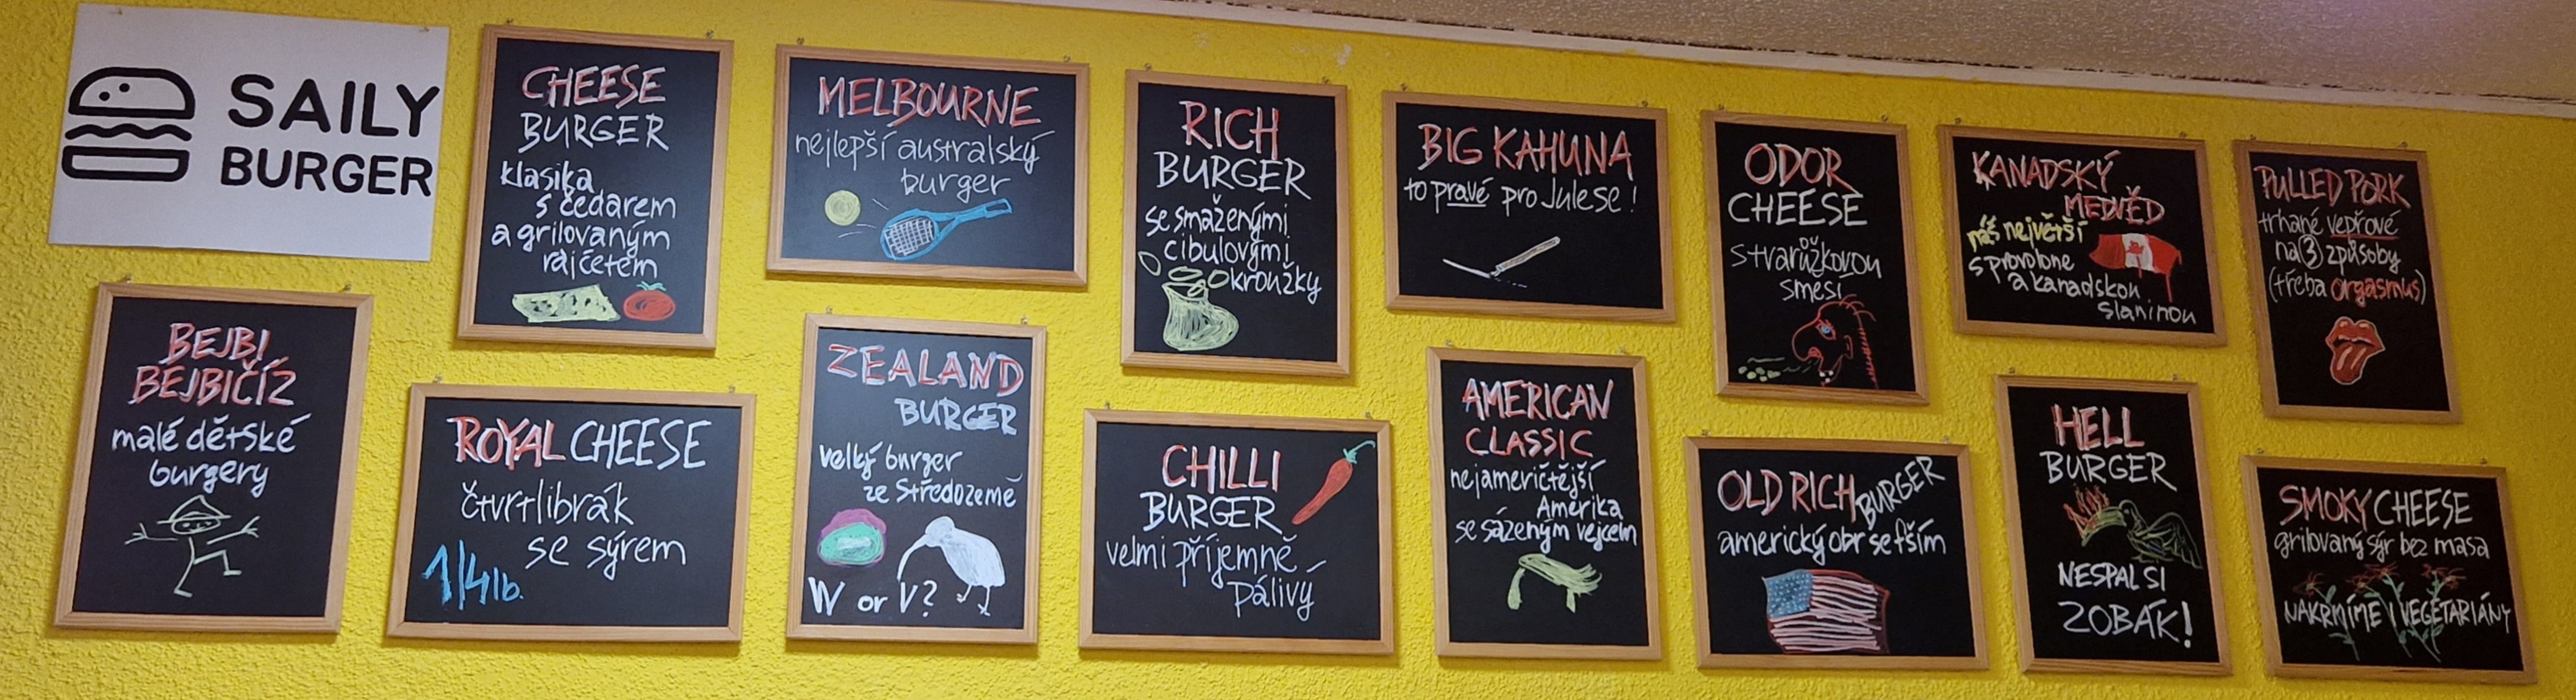 SAILY
BURGER
CHEESE
BURGER
klasika
s čedarem
a grilovaným
rajčetem
MELBOURNE
nejlepší australský
burger
RICH
BURGER
se smaženými
cibulovými
kroužky
BIG KAHUNA
to pravé pro Julese!
ODOR
CHEESE
s tvarůžkovou
směsí
KANADSKÝ
MEDVĚD
náš největší
s provolone
a kanadskou
slaninou
PULLED PORK
trhané vepřové
na 3 způsoby
(třeba orgasmus)
BEJBI
BEJBIČÍZ
malé dětské
burgery
ROYAL CHEESE
čtvrtlibrák
se sýrem
1/4 lb.
ZEALAND
BURGER
velký burger
ze Středozemě
W or V?
CHILLI
BURGER
velmi příjemně
pálivý
AMERICAN
CLASSIC
nejameričtější
Amerika
se sázeným vejcem
OLD RICH BURGER
americký obr se fším
HELL
BURGER
NESPAL SI
ZOBÁK!
SMOKY CHEESE
grilovaný sýr bez masa
NAKRMÍME I VEGETARIÁNY